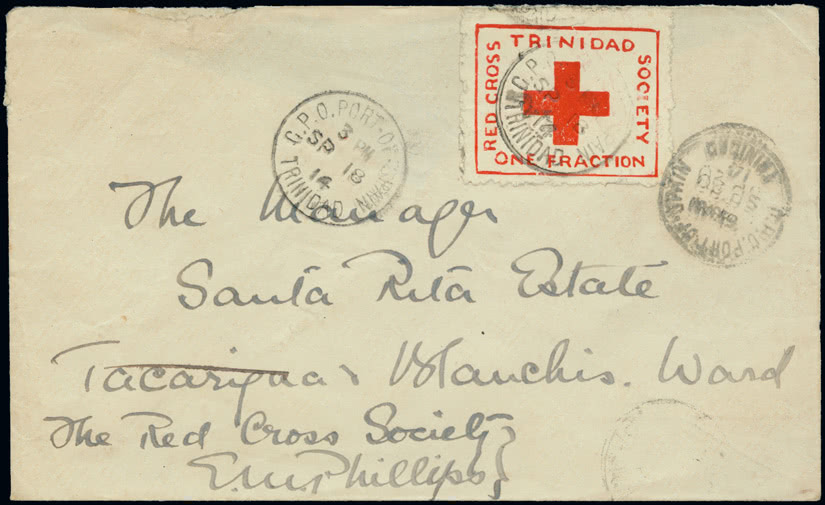 TRINIDAD
RED CROSS
SOCIETY
ONE FRACTION
G.P.O. PORT-OF-SPAIN
3 PM
SP 18
14
TRINIDAD
G.P.O.
TRINIDAD
PORT-OF-SPAIN
TRINIDAD
The Manager
Santa Rita Estate
Tacarigua
Blanchis. Ward
The Red Cross Society
E.M. Phillips